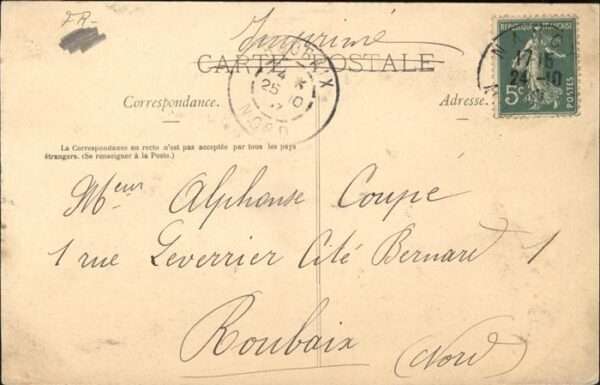 FR-
Imprimé
CARTE POSTALE
Correspondance.
Adresse.
La Correspondance au recto n'est pas acceptée par tous les pays
étrangers. (Se renseigner à la Poste.)
REPUBLIQUE FRANÇAISE
5c
POSTES
17
24 -10
25 10
NORD
Meur Alphonse Coupé
1 rue Leverrier Cité Bernard 1
Roubaix (Nord)